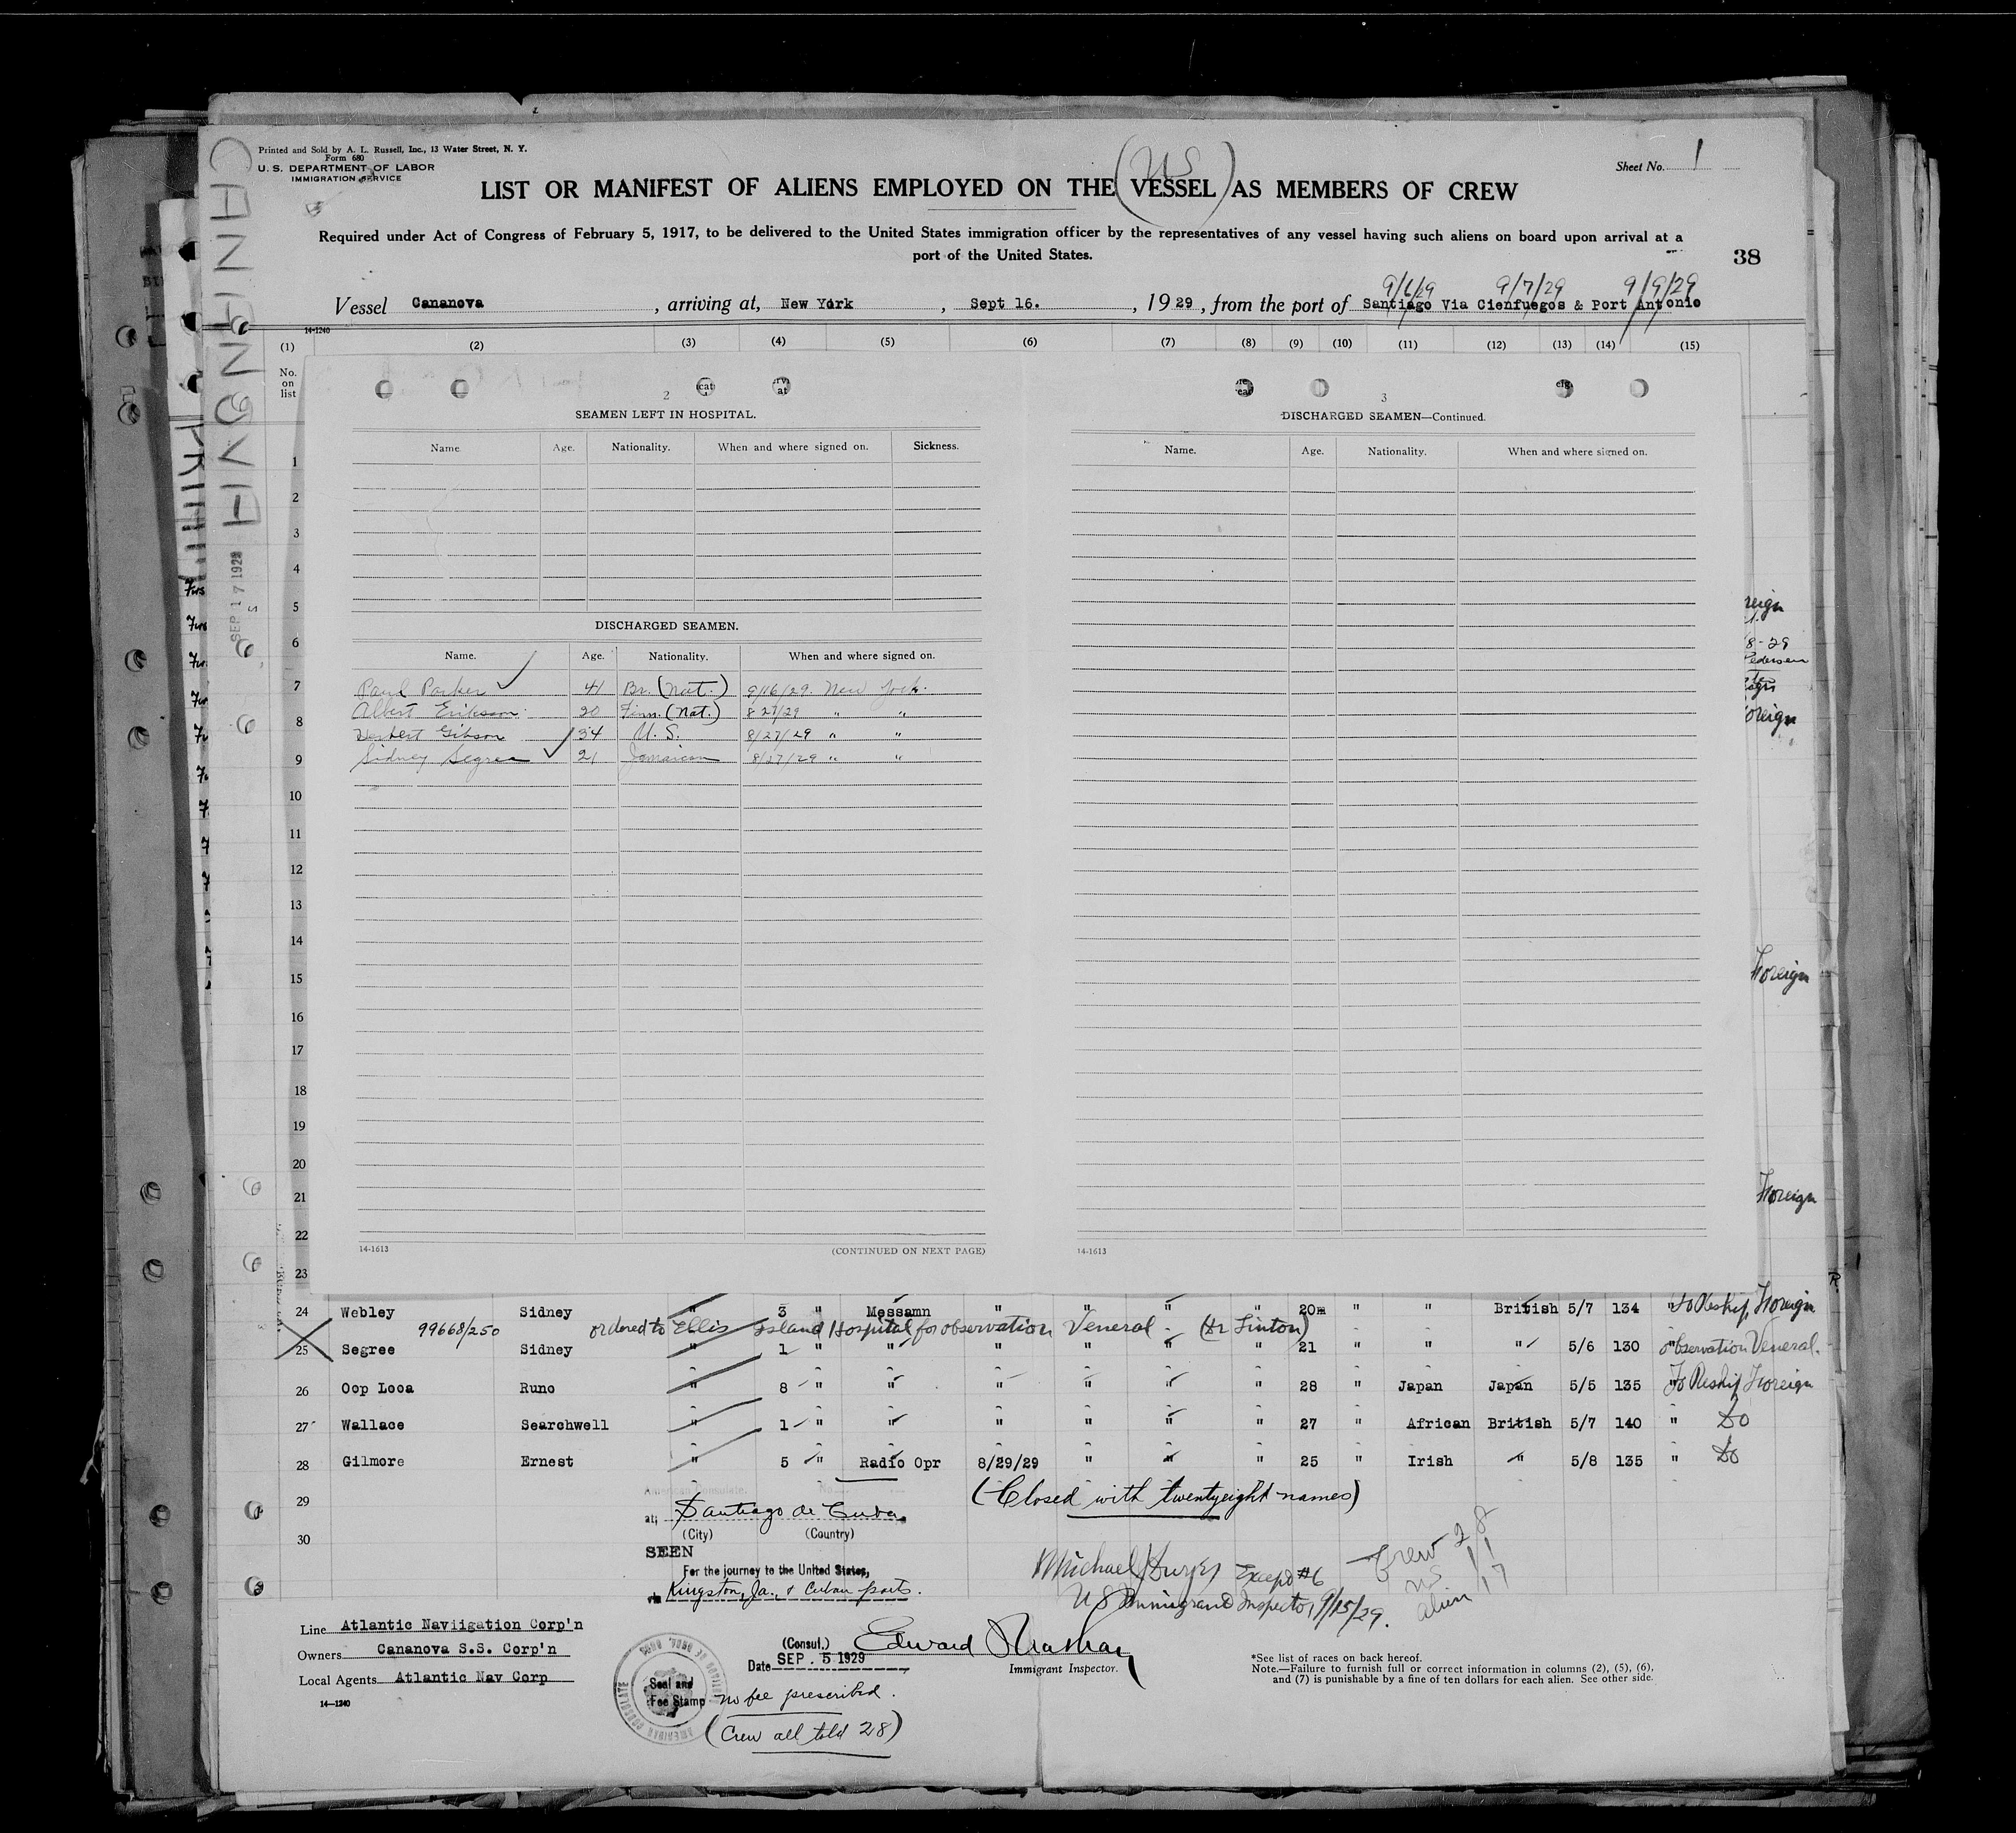 Printed and Sold by A. L. Russell, Inc., 13 Water Street, N. Y.
Form 680
U. S. DEPARTMENT OF LABOR
IMMIGRATION SERVICE
Sheet No. 1
(US)
LIST OR MANIFEST OF ALIENS EMPLOYED ON THE VESSEL AS MEMBERS OF CREW
Required under Act of Congress of February 5, 1917, to be delivered to the United States immigration officer by the representatives of any vessel having such aliens on board upon arrival at a
port of the United States.
38
9/6/29 9/7/29 9/9/29
Vessel Cananova, arriving at, New York, Sept 16., 1929, from the port of Santiago Via Cienfuegos & Port Antonio
14-1240
(1) (2) (3) (4) (5) (6) (7) (8) (9) (10) (11) (12) (13) (14) (15)
No.
on
list
CANANOVA
SEP 17 1929
2
SEAMEN LEFT IN HOSPITAL.
Name Age. Nationality. When and where signed on. Sickness.
DISCHARGED SEAMEN.
Name. Age. Nationality. When and where signed on.
Paul Parker 41 Br. (Nat.) 9/16/29. New York.
Albert Erikson 20 Finn. (Nat.) 8 27/29 " "
Herbert Gibson 34 U. S. 8/27/29 " "
Sidney Segree 21 Jamaican 8/27/29 " "
14-1613 (CONTINUED ON NEXT PAGE)
3
DISCHARGED SEAMEN—Continued.
Name. Age. Nationality. When and where signed on.
14-1613
1
2
3
4
5
6
7
8
9
10
11
12
13
14
15
16
17
18
19
20
21
22
23
reign
8-29
Pedersen
oreign
Foreign
Foreign
24 Webley Sidney " 3 " Messamn " " " " 20m " " British 5/7 134 " To Reship Foreign
99668/250 ordered to Ellis Island Hospital for observation Veneral - (Dr Linton)
25 Segree Sidney " 1 " " " " " " 21 " " " 5/6 130 " observation Veneral.
26 Oop Looa Runo " 8 " " " " " " 28 " Japan Japan 5/5 135 " To Reship Foreign
27 Wallace Searchwell " 1 " " " " " " 27 " African British 5/7 140 " Do
28 Gilmore Ernest " 5 " Radio Opr 8/29/29 " " " 25 " Irish " 5/8 135 " Do
29
30
(Closed with twentyeight names)
American Consulate.
at; Santiago de Cuba.
(City) (Country)
SEEN
For the journey to the United States,
via Kingston, Ja., & Cuban ports.
Michael Dwyer Except #6
U S Immigrant Inspector 9/15/29.
Crew 28
US 11
alien 17
Line Atlantic Naviigation Corp'n
Owners Cananova S.S. Corp'n
Local Agents Atlantic Nav Corp
14—1240
(Consul.)
Date SEP. 5 1929
Edward
Immigrant Inspector.
Seal and
Fee Stamp
AMERICAN CONSULATE
no fee prescribed.
(Crew all told 28)
*See list of races on back hereof.
Note.—Failure to furnish full or correct information in columns (2), (5), (6),
and (7) is punishable by a fine of ten dollars for each alien. See other side.